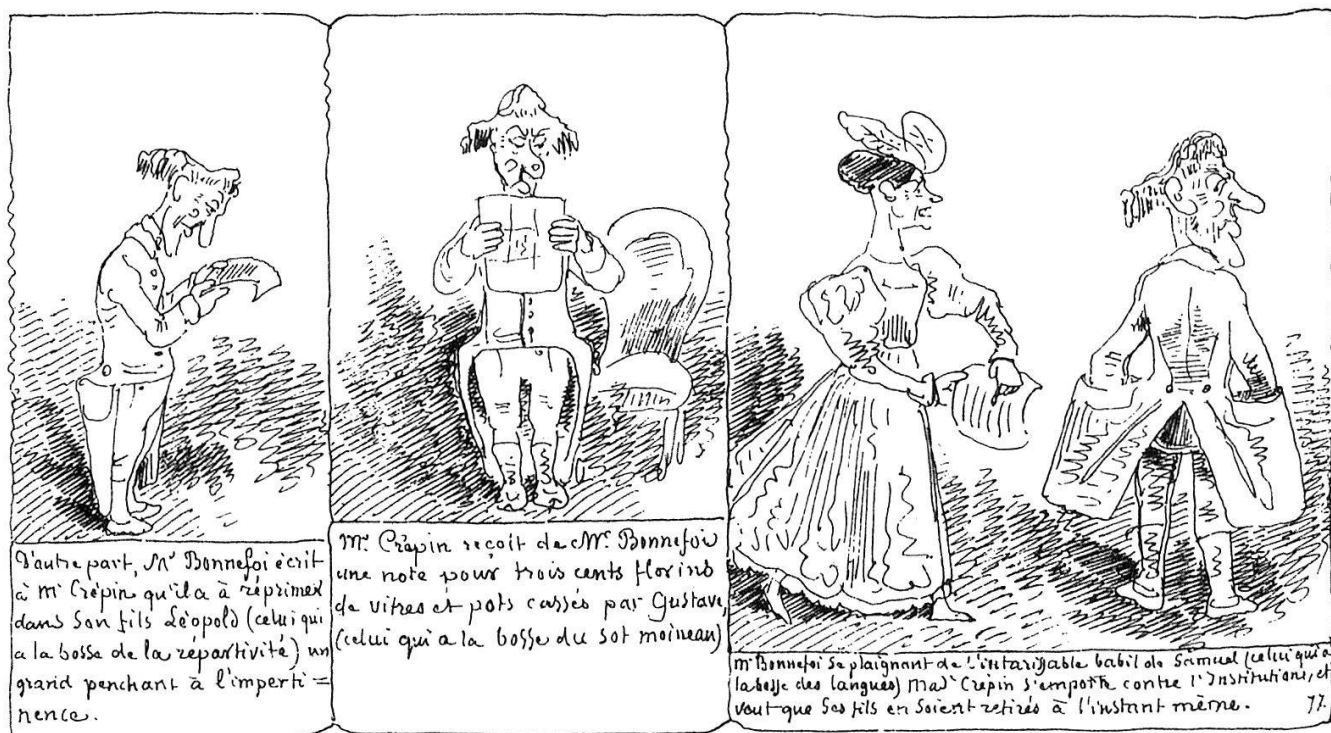 D'autre part, Mr Bonnefoi écrit
à Mr Crépin qu'il a à réprimer
dans son fils Léopold (celui qui
a la bosse de la répartivité) un
grand penchant à l'imperti=
nence.
Mr. Crépin reçoit de Mr. Bonnefoi
une note pour trois cents florins
de vitres et pots cassés par Gustave,
(celui qui a la bosse du sot moineau)
Mr Bonnefoi se plaignant de l'intarissable babil de Samuel (celui qui a
la bosse des langues) Made Crépin s'emporte contre l'Institutions, et
veut que ses fils en soient retirés à l'instant même.
77.